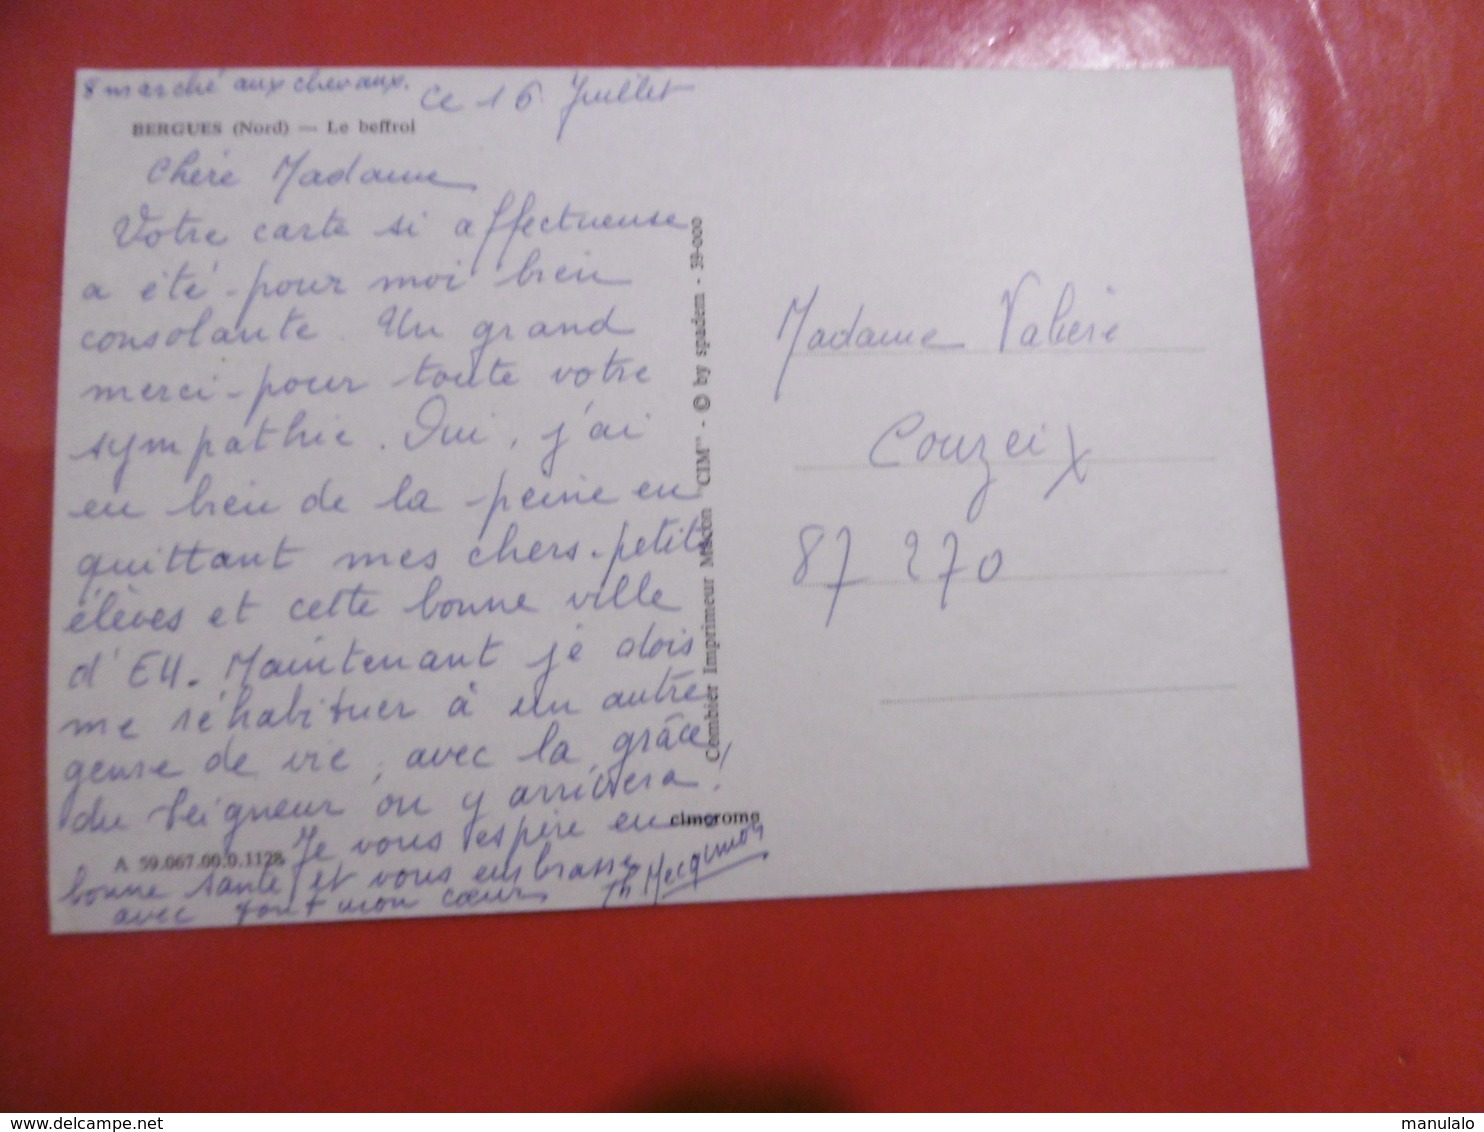 8 marché aux chevaux.
Ce 16 Juillet
BERGUES (Nord) — Le beffroi
Chère Madame
Votre carte si affectueuse
a été pour moi bien
consolante. Un grand
merci pour toute votre
sympathie. Oui, j'ai
eu bien de la peine en
quittant mes chers petits
élèves et cette bonne ville
d'EU. Maintenant je dois
me réhabituer à un autre
genre de vie, avec la grâce
du Seigneur on y arrivera!
Je vous espère en
bonne santé et vous embrasse
avec tout mon cœur
Th
A 59.067.00.0.1128
cimcrome
Combier Imprimeur Macon "CIM" - © by spadem - 59-000
Madame Valière
Couzeix
87 270
manulalo